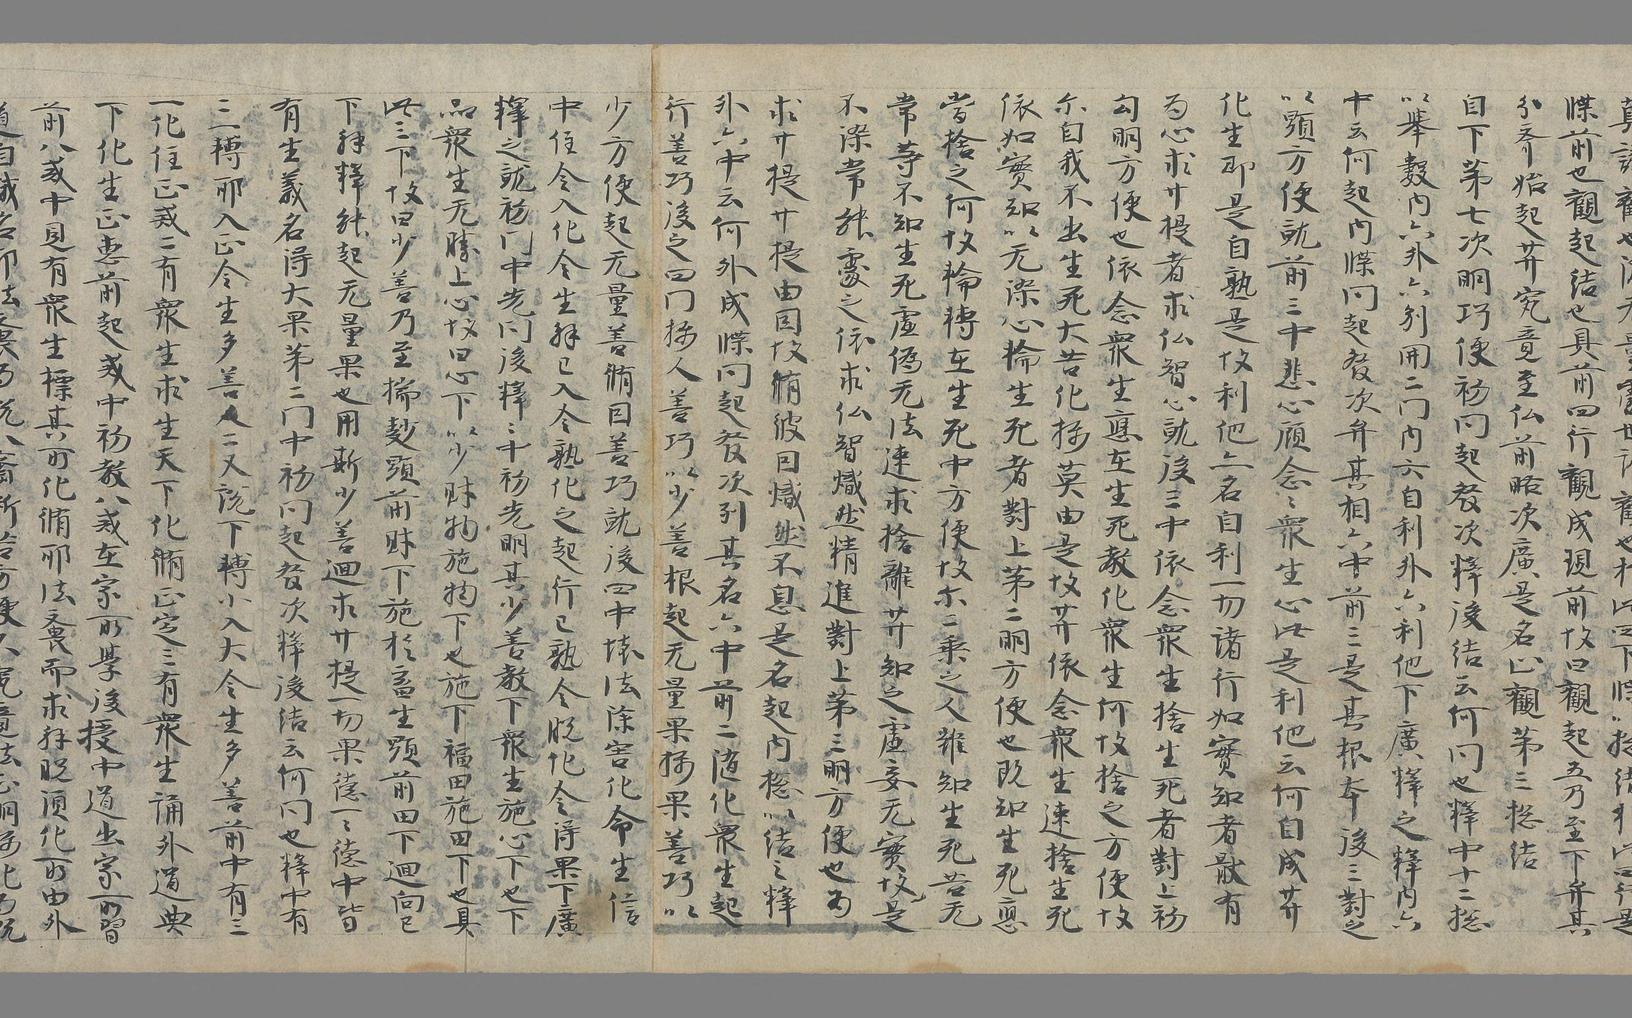 牒前也觀起結也具前四行觀成現前故曰觀起五乃至下弁其
分齊始起卄究竟至仏前略次廣是名心觀第三捴結
自下第七次明巧便初問起發次釋後結云何問也釋中十二捴
以舉數內六外六別開二門內六自利外六利他下廣釋之釋內六
中云何起內牒問起發次弁其相六中前三是其根本後三對之
以顯方便就前三中悲心顧念〻衆生心此是利他云何自成卄
化生即是自熟是故利他亦名自利一切諸行如實知者觀有
為心求卄提者求仏智心就後三中依念衆生捨生死者對上初
句明方便也依念衆生應在生死教化衆生何故捨之方便故
尒自我不出生死大苦化物莫由是故卄依念衆生速捨生死
依如實知以无染心輪生死者對上第二明方便也既知生死應
當捨之何故輪轉在生死中方便故尒二乘之人雖知生死苦无
常等不知生死虛僞无法速求捨離卄知之虛妄无實故是
不染常能處之依求仏智熾然精進對上第三明方便也為
求卄提卄提由因故脩彼因熾然不息是名起內捴以結之釋
外六中云何外成牒問起發次列其名六中前二隨化衆生起
行善巧後之四門攝人善巧以少善根起无量果攝果善巧以
少方便起无量善脩因善巧就後四中壞法除害化命生信
中住令入化令生解已入令熟化之起行已熟令脫化令得果下廣
釋之就初門中先問後釋〻中初先明其少善教下衆生施心下也下
品衆生无勝上心故曰心下以少財物施物下也施下福田施田下也具
此三下故曰少善乃至揣麨顯前財下施於畜生顯前田下迴向已
下解釋能起无量果也用斯少善迴求卄提一切果德〻德中皆
有生義名得大果第二門中初問起發次釋後結云何問也釋中有
三轉邪入正令生多善二又說下轉小入大令生多善前中有三
一化住正戒二有衆生求生天下化脩正定三有衆生誦外道典
下化生正惠前起戒中初教八戒在家所學後授中道出家所習
前八戒中見有衆生標其所化脩邪法齋而求解脫須化所由外